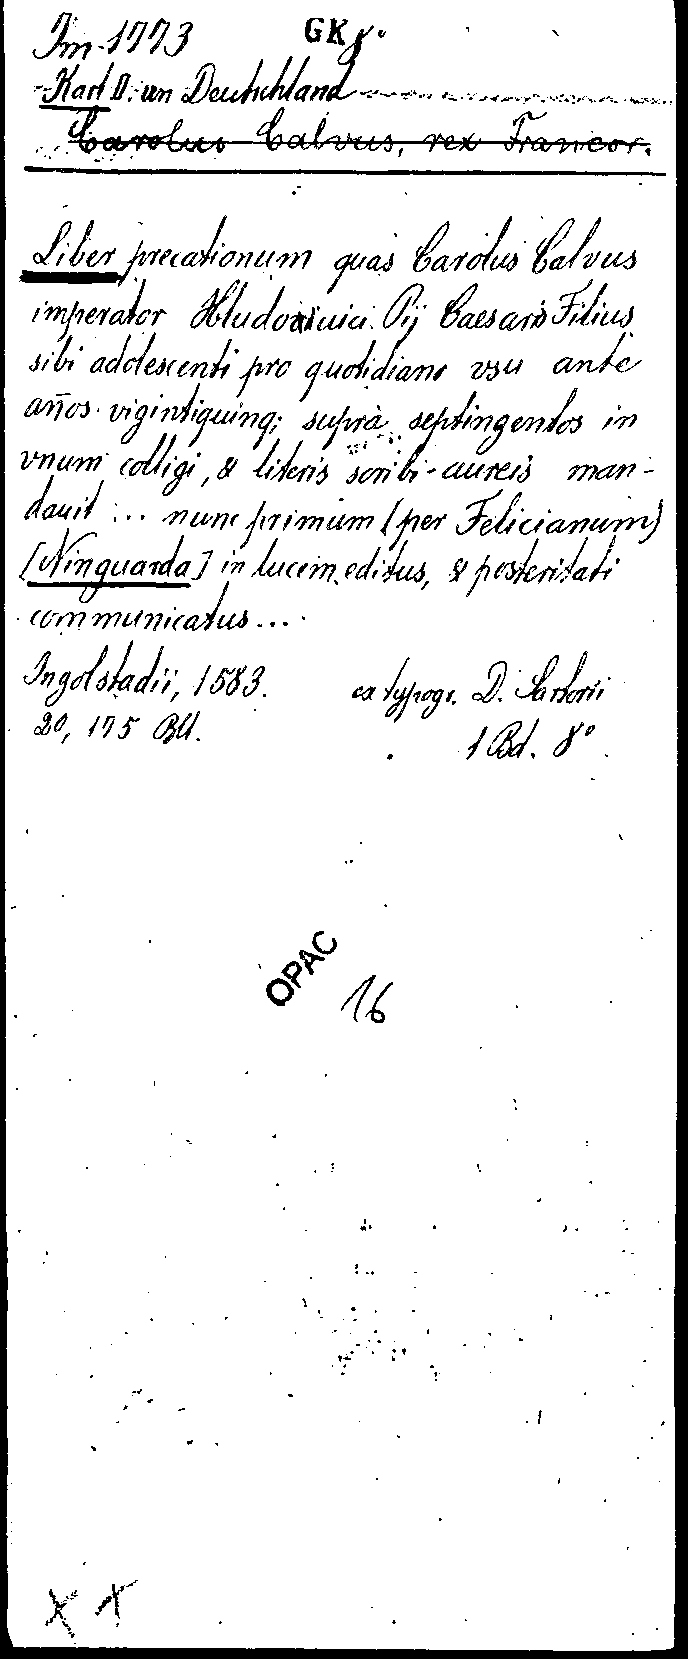 Im 1773 GK 8°
Karl II. von Deutschland
Carolus Calvus, rex Francor.
Liber precationum quas Carolus Calvus
imperator Hludouuici Pij Caesaris Filius
sibi adolescenti pro quotidiano vsu ante
añosvigintiquinq; suprà septingentos in
vnum colligi, & literis scribi aureis man-
dauit ... nunc primum (per Felicianum)
[Ninguarda] in lucem editus, & posteritati
communicatus ...
Ingolstadii, 1583. ex typogr. D. Sartorii
20, 175 Bll. 1 Bd. 8°
OPAC
16